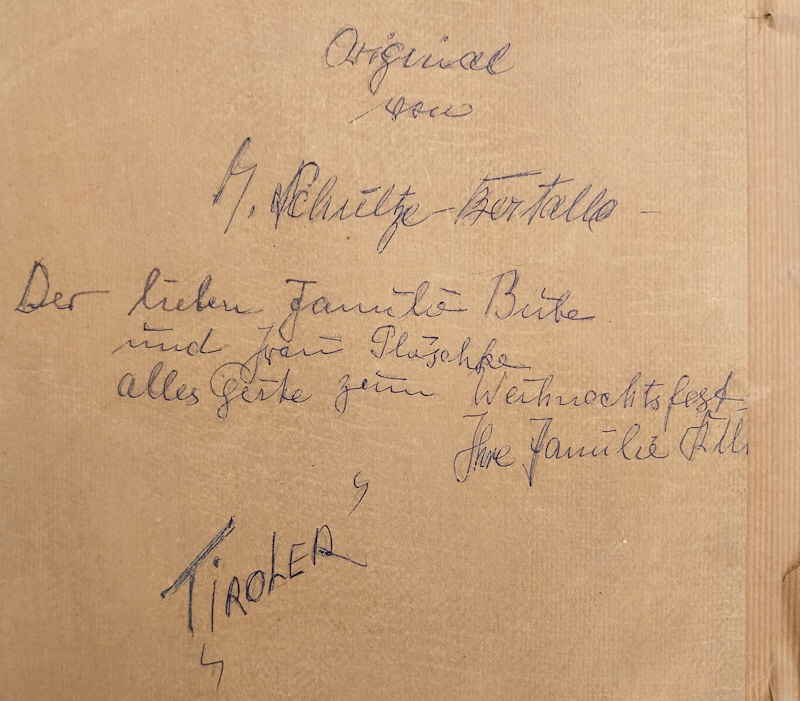 Original
von
M. Schultze-Bertallo -
Der lieben Familie Bube
und Frau Plöschke
alles Gute zum Weihnachtsfest
Ihre Familie
"TIROLER"